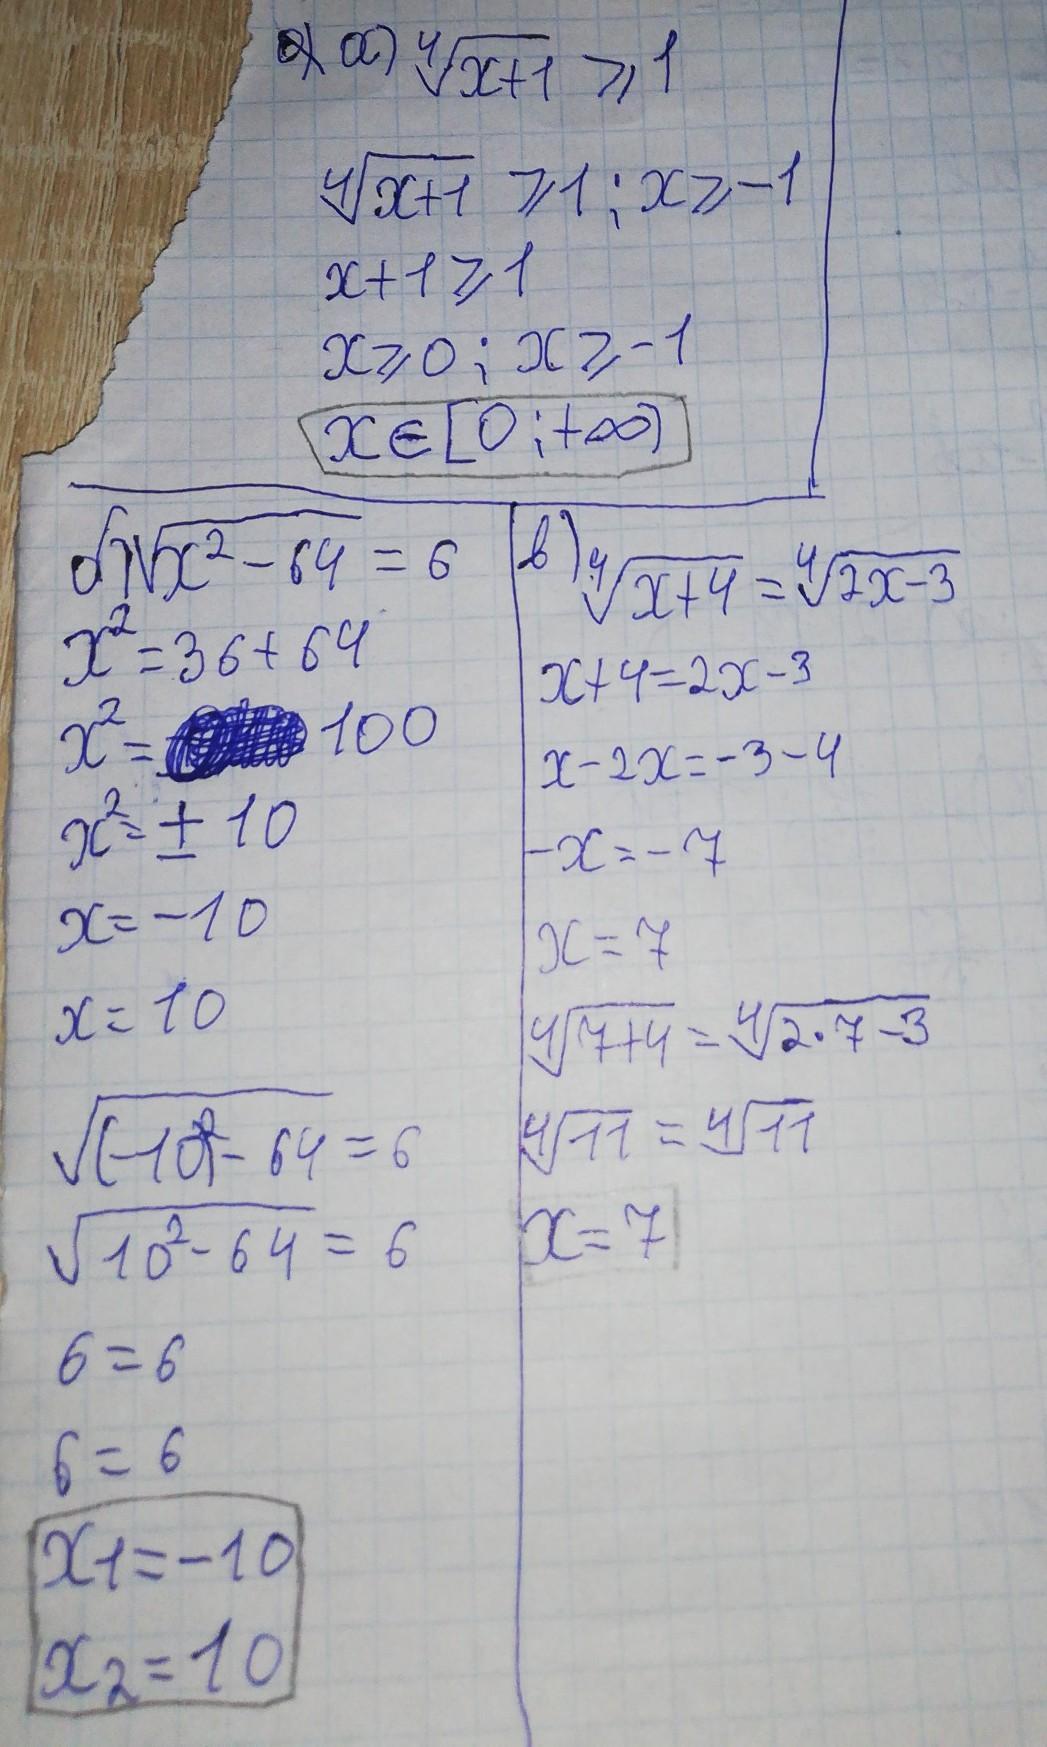 а) ∜(x+1) ⩾ 1
∜(x+1) ⩾ 1 ; x ⩾ -1
x+1 ⩾ 1
x ⩾ 0 ; x ⩾ -1
x ∈ [0 ; +∞)
б) √(x²-64) = 6
x² = 36+64
x² = 100
x² = ± 10
x = -10
x = 10
√((-10)²-64) = 6
√(10²-64) = 6
6 = 6
6 = 6
x1 = -10
x2 = 10
в) ∜(x+4) = ∜(2x-3)
x+4 = 2x-3
x-2x = -3-4
-x = -7
x = 7
∜(7+4) = ∜(2·7-3)
∜11 = ∜11
x = 7